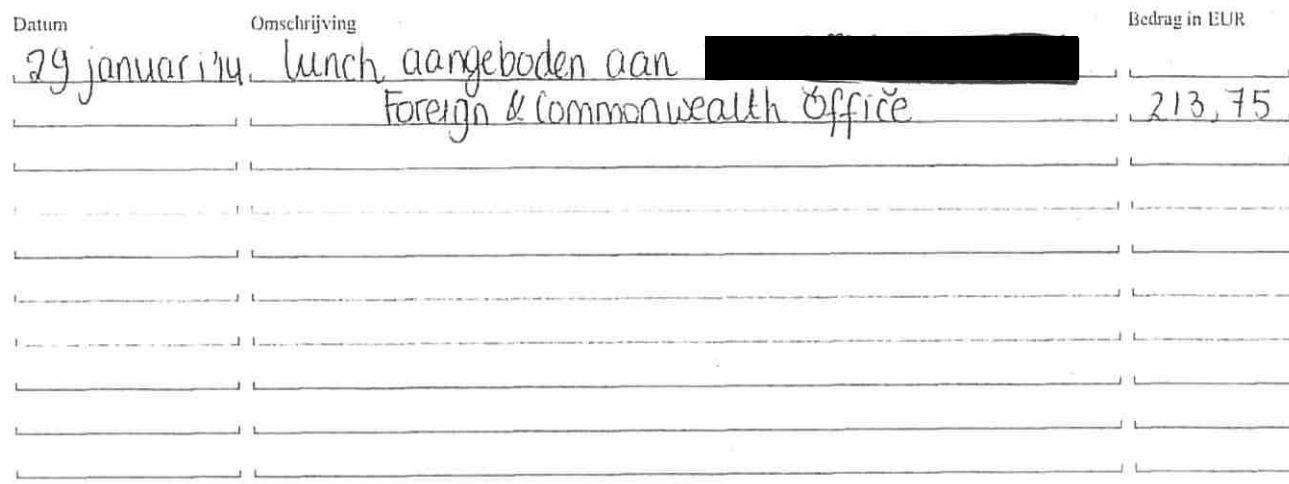 Datum Omschrijving Bedrag in EUR
29 januari '14 lunch aangeboden aan
Foreign & Commonwealth Office 213,75